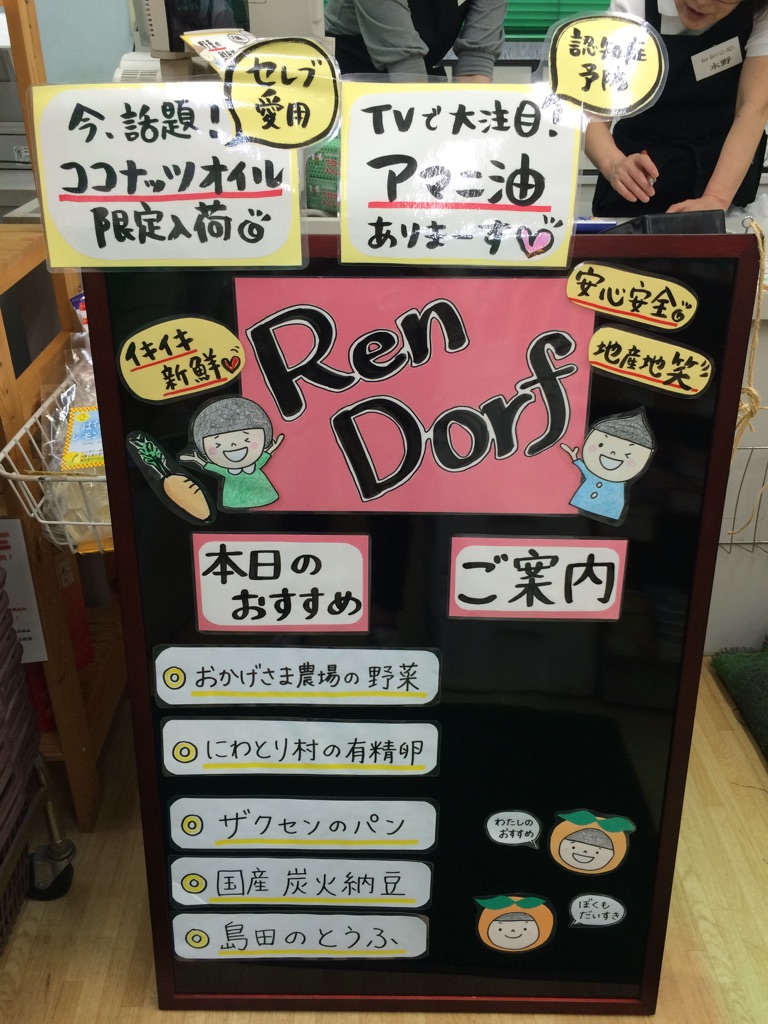 セレブ
愛用
今、話題!
ココナッツオイル
限定入荷
認知症
予防
TVで大注目!
アマニ油
ありまーす
永野
安心安全
地産地笑
イキイキ
新鮮
Ren
Dorf
本日の
おすすめ
ご案内
◎おかげさま農場の野菜
◎にわとり村の有精卵
◎ザクセンのパン
◎国産 炭火納豆
◎島田のとうふ
わたしの
おすすめ
ぼくも
だいすき